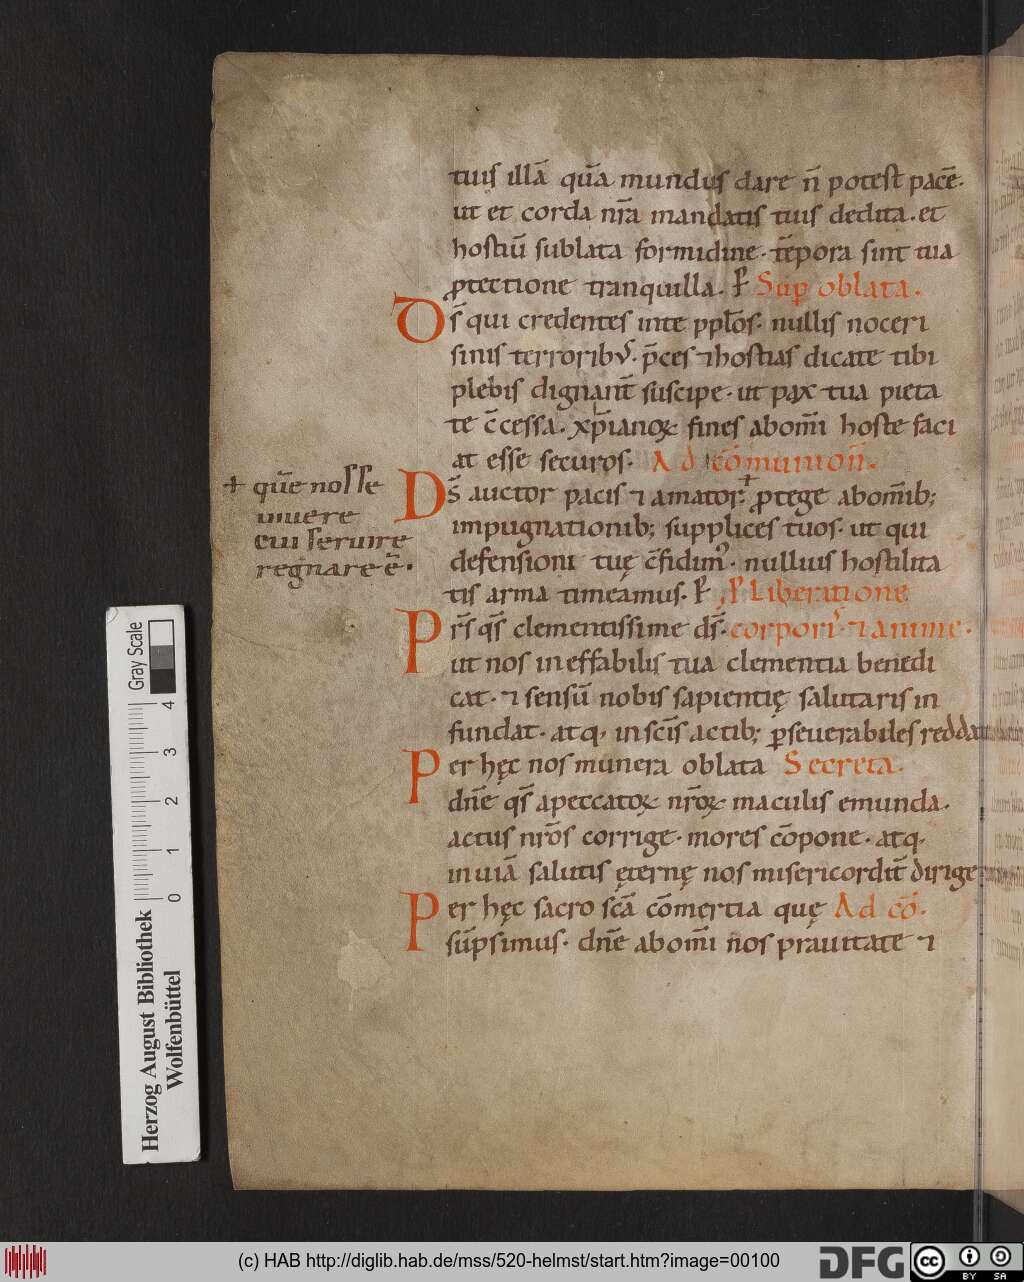 tuis illā quā mundus dare n̄ potest pacē·
ut et corda nr̄a mandatis tuis dedita· et
hostiū sublata formidine· tēpora sint tua
ꝓtectione tranquilla. P̄ Sup̄ oblata.
Ds̄ qui credentes inte ppl̄os· nullis noceri
sinis terrorib᾽· p̄ces ⁊ hostias dicate tibi
plebis dignant̄ suscipe· ut pax tua pieta
te c̄cessa· xp̄ianoꝝ fines abom̄i hoste faci
at esse securos· Ad cōmunion̄.
Ds̄ auctor pacis ⁊ amator:+ ꝓtege abom̄ib;
impugnationib; supplices tuos· ut qui
defensioni tuę c̄fidim᾽· nullius hostilita
tis arma timeamus· P̄ P̄ Liberatione
Pr̄s qs̄ clementissime ds̄· corporis ⁊ anime·
ut nos ineffabilis tua clementia benedi
cat· ⁊ sensū nobis sapientię salutaris in
fundat· atq· in scīs actib; ꝑseuerabiles reddat
Per hęc nos munera oblata Secreta.
dn̄e qs̄ apeccatoꝝ nr̄oꝝ maculis emunda·
actus nr̄os corrige· mores cōpone· atq·
in uiā salutis ęternę nos misericordit̄ dirige
Per hęc sacro sc̄a cōmertia quę Ad cō.
sūpsimus· dn̄e abom̄i nos prauitate ⁊
+ quē nosse
uiuere
cui seruire
regnare ē·
Gray Scale
0 1 2 3 4
Herzog August Bibliothek
Wolfenbüttel
(c) HAB http://diglib.hab.de/mss/520-helmst/start.htm?image=00100
DFG
cc BY SA